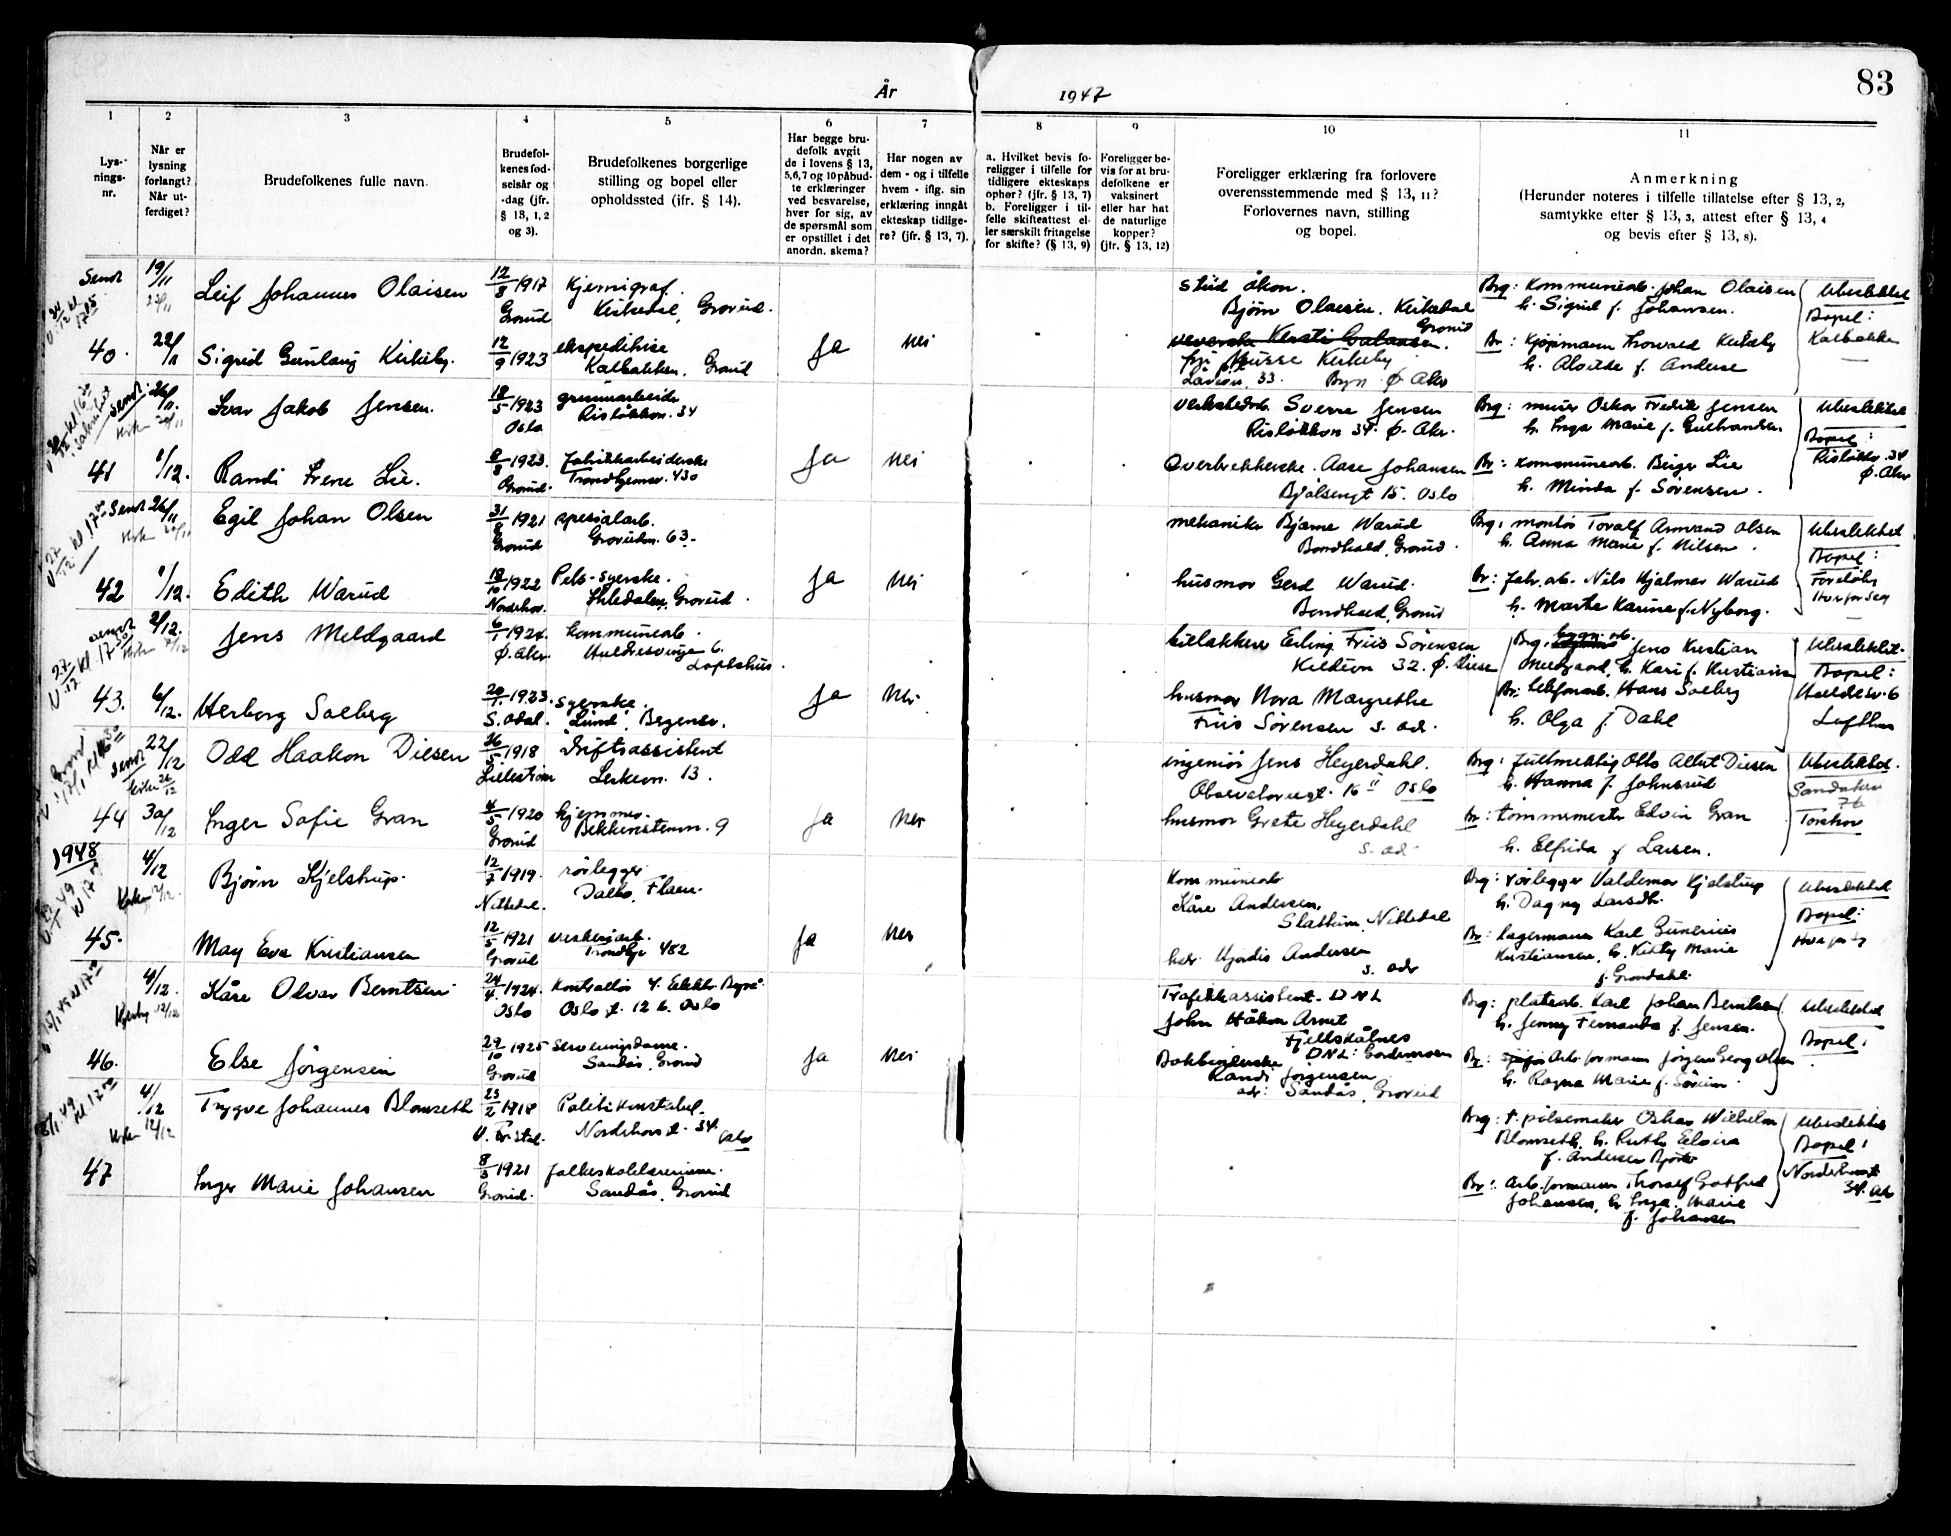 83
År 1947
1 2 3 4 5 6 7 8 9 10 11
Lysningsnr.
Når er lysning forlangt? Når utferdiget?
Brudefolkenes fulle navn.
Brudefolkenes fødselsår og -dag (jfr. § 13, 1, 2 og 3).
Brudefolkenes borgerlige stilling og bopel eller opholdssted (jfr. § 14).
Har begge brudefolk avgit de i lovens § 13, 5,6,7 og 10 påbudte erklæringer ved besvarelse, hver for sig, av de spørsmål som er opstillet i det anordn. skema?
Har nogen av dem - og i tilfelle hvem - iflg. sin erklæring inngått ekteskap tidligere? (jfr. § 13, 7).
a. Hvilket bevis foreligger i tilfelle for tidligere ekteskaps ophør? (jfr. § 13, 7)
b. Foreligger i tilfelle skifteattest eller særskilt fritagelse for skifte? (§ 13, 9)
Foreligger bevis for at brudefolkene er vaksinert eller har hat de naturlige kopper? (jfr. § 13, 12)
Foreligger erklæring fra forlovere overensstemmende med § 13, 11?
Forlovernes navn, stilling og bopel.
Anmerkning
(Herunder noteres i tilfelle tillatelse efter § 13, 2, samtykke efter § 13, 3, attest efter § 13, 4 og bevis efter § 13, 8).
Sendt 19/11 Leif Johannes Olaisen 12/8 1917 Kjemigraf. Stud økon. Brg: Kommunearb. Johan Olaisen Ubeslektet
Grorud Kirkedal, Grorud. Bjørn Olaisen. Kirkedal h. Sigrid f. Johansen. Bopel:
Grorud
40. 22/11 Sigrid Gunlaug Kirkeby. 12/9 1923 ekspeditrise Ja nei Br: Kjøpmann Thorvald Kirkeby Kalbakken
Kalbakken, Grorud Kirkeby h. Alvilde f.
33. Ø. Aker
sendt 26/11 Ivar Jakob Jensen. 18/5 1923 grunnarbeider verkstedarb. Sverre Jensen Brg: murer Oskar Fredrik Jensen Ubeslektet
Oslo Risløkkvn. 34 Risløkkvn 34. Ø. Aker. h. Inga Marie f. Gulbrandsen Bopel:
Risløkkv. 34
Ø. Aker
41 1/12. Randi Irene Lie. 1923. Fabrikkarbeiderske Ja nei Overtrekkerske Aase Johansen Br: Kommunearb. Birger Lie
Grorud. Trondhjemsv. 430 Bjølsengt 15. Oslo h. Minda f. Sørensen.
Sendt 26/11 Egil Johan Olsen 31/8 1921 spesialarb. mekaniker Bjarne Warud Brg: montør Toralf Armand Olsen Ubeslektet
Grorud Grorudvn. 63. Bondkald, Grorud. h. Anna Marie f. Nilsen. Bopel:
42 1/12. Edith Warud 18/10 1922 Pels-syerske. Ja nei husmor Gerd Warud. Br: Fabr. arb. Nils Hjalmar Warud Foreløbig
Norderhov. Grorud. Bondkald, Grorud h. Marte Karine f. Nyborg. Hver for seg
27/12 kl 17 sendt 2/12. Jens Meldgaard 6/1 1924. kommunearb. billakkerer Erling Friis Sørensen Brg: bygn. arb. Jens Kristian Ubeslektet
Ø. Aker Huldresvingen 6. Kildevn 32. Ø. Aker Meldgaard, h. Kari f. Kristiansen Bopel:
Loftshus.
43. 6/12. Herborg Solberg 20/1. 1923. syerske Ja nei. husmor Nora Margrethe Br: telefonarb. Hans Solberg Huldresv. 6
S. Odal. "Lund", Friis Sørensen s. adr. h. Olga f. Dahl
sendt 22/12 Odd Haakon Diesen 26/5 1918 Driftsassistent ingeniør Jens Heyerdahl. Brg: Fullmektig Otto Albert Diesen Ubeslektet.
Lillestrøm 13. Observatoriegt. 16 II Oslo h. Hanna f. Johnsrud Sandakervn
76
44 30/12 Inger Sofie Gran 4/5 1920 hjemmev. Ja nei husmor Grete Heyerdahl Br: tømmermester Edvin Gran Torshov
Grorud Bekkenstenvn. 9 s. adr. h. Elfrida f. Larsen.
1948
4/12 Bjørn Kjelstrup. 12/7 1919. rørlegger Kommunearb Brg: rørlegger Valdemar Kjelstrup Ubeslektet
Nittedal. Dalbo, Kåre Andersen, h. Dagny Bopel:
Slattum, Nittedal
45. May Eva Kristiansen 12/5 1921 Ja nei Hjørdis Andersen Br: lagermann Karl Gunerius
Grorud Trondhjv 482 s. adr Kristiansen, h. Marie
f. Grøndahl.
4/12. Kåre Olvar Berntsen 24/4. 1924. Kontrollør v. Elektr. Byrå Trafikkassistent. DNL Brg: platearb. Karl Johan Berntsen Ubeslektet
12/12 Oslo Oslo 12 b. Oslo John Håkon Fjellskålnes h. Jenny Fernanda f. Jensen. Bopel:
DNL: Gardermoen
46. Else Jørgensen 29/10 1925 Serveringsdame. Ja nei Bokbinderske Br: Arb. formann Jørgen Georg Olsen
Grorud Sandås, Grorud Randi Jørgensen h. Ragna Marie f. Sørum.
adr: Sandås, Grorud
5/1-49 kl. 17 4/12 Trygve Johannes Blomseth 23/2 1918 Politikonstabel. Brg: t. pølsemaker Oskar Wilhelm Ubeslektet
12/12 34. Oslo Blomseth, h. Ruth Elvira Bopel:
f. Andersen
47 Inger Marie Johansen 8/3 1921 folkeskolelærerinne. Br: Arb. formann Thoralf Gotfred 34. Oslo
Grorud. Sandås, Grorud Johansen, h. Inga Marie
f. Johansen